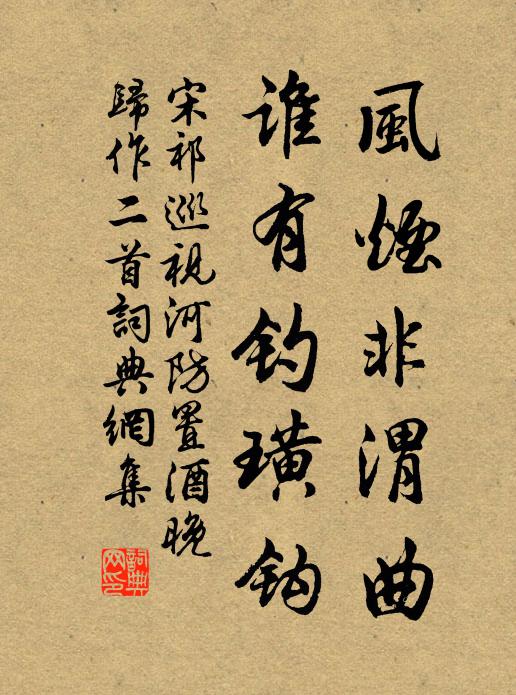 風煙非渭曲
誰有釣璜鈎
宋祁巡視河防置酒晚
歸作二首詞典網集
詞典网印